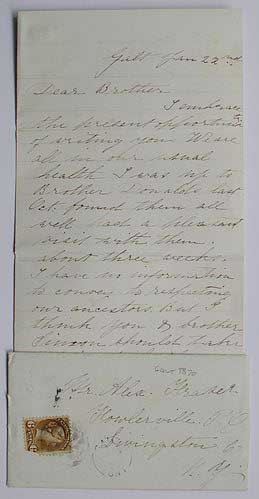 Galt Jan 22nd
Dear Brother
I embrace
the present opportunity
of writing you We are
all in our usual
health I was up to
Brother Donalds last
Oct. found them all
well had a pleasant
visit with them.
about three weeks.
I have no information
to convey to respecting
our ancestors. But I
think you & brother
Simon should take
Galt 1870
Mr Alex. Fraser
Fowlerville P.O.
Livingston Co
N. Y.